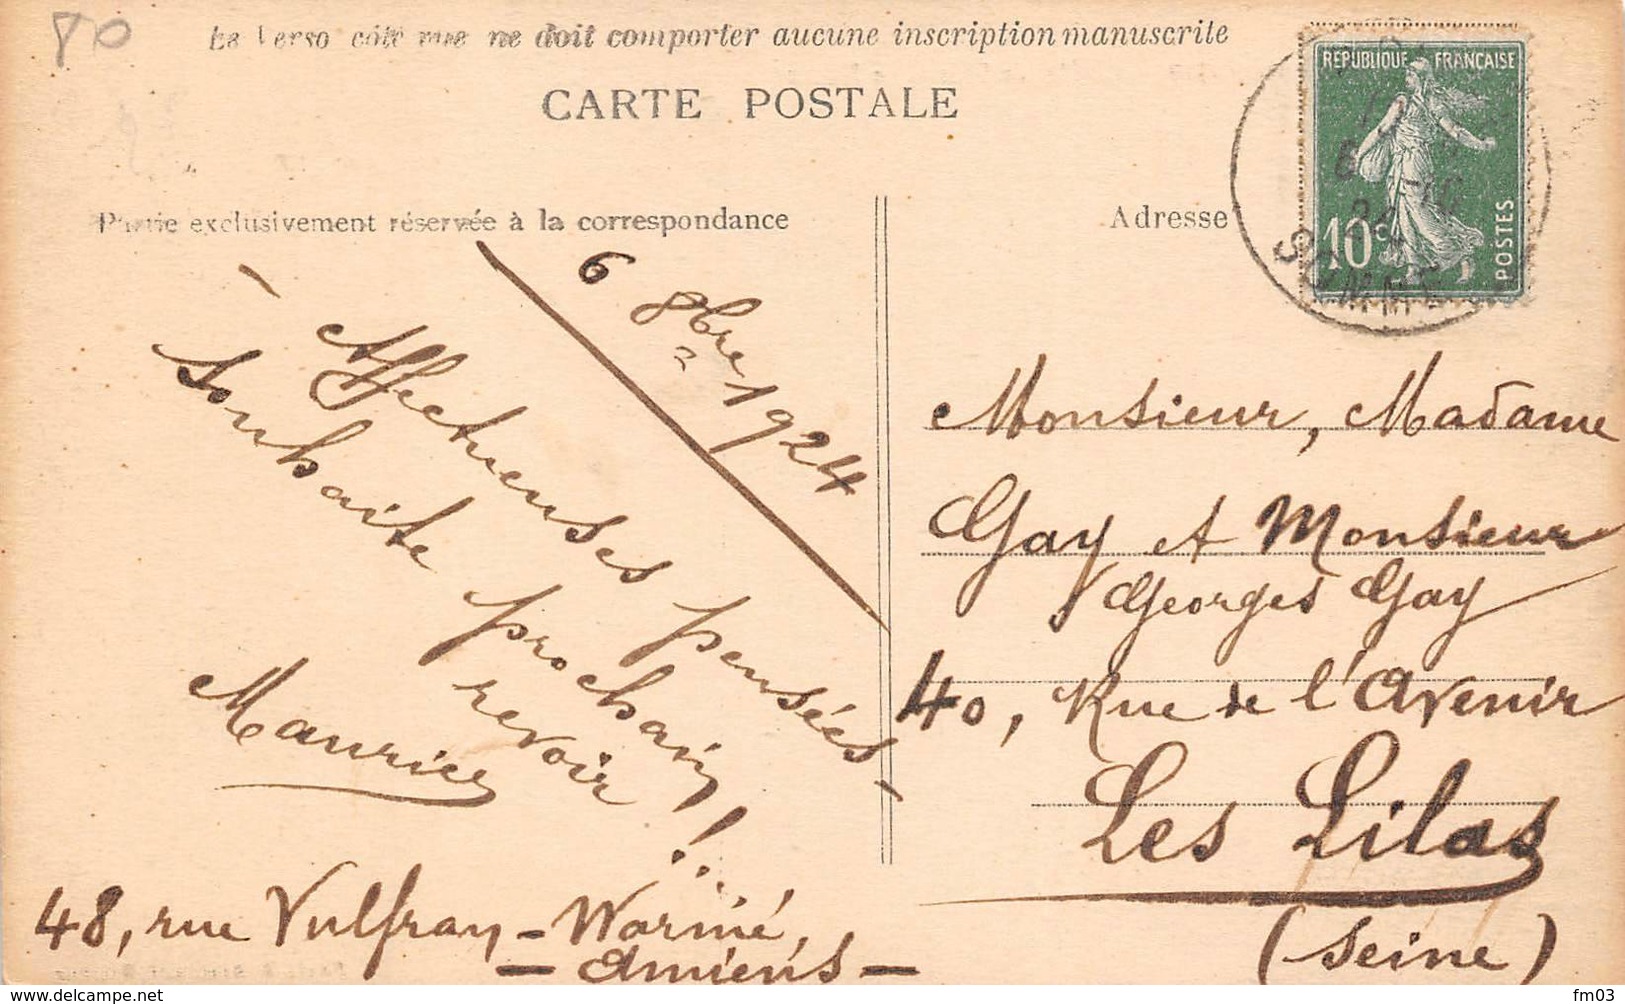 80
Le Verso côté vue ne doit comporter aucune inscription manuscrite
CARTE POSTALE
RÉPUBLIQUE FRANÇAISE
10c
POSTES
SOMME
Partie exclusivement réservée à la correspondance
Adresse
6 8bre 1924
Affectueuses pensées -
Souhaite prochain
revoir!!
Maurice
48, rue Vulfran - Warmé,
- Amiens -
Monsieur, Madame
Gay et Monsieur
Georges Gay
40, Rue de l'Avenir
Les Lilas
(Seine)
delcampe.net
fm03